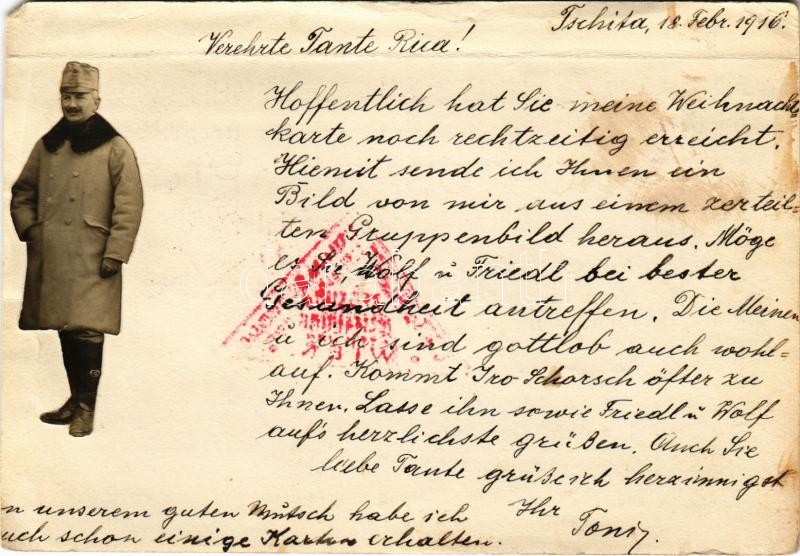 Tschita, 18. Febr. 1916.
Verehrte Tante Rica!
Hoffentlich hat Sie meine Weihnachts
karte noch rechtzeitig erreicht.
Hiemit sende ich Ihnen ein
Bild von mir aus einem zerteil-
ten Gruppenbild heraus. Möge
es Sie, Wolf u Friedl bei bester
Gesundheit antreffen. Die Meinen
u ich sind gottlob auch wohl-
auf. Kommt Iro Schorsch öfter zu
Ihnen. Lasse ihn sowie Friedl u Wolf
auf's herzlichste grüßen. Auch Sie
liebe Tante grüße ich herzinnigst
Ihr
Toni
n unserem guten Mutsch habe ich
uch schon einige Karten erhalten.